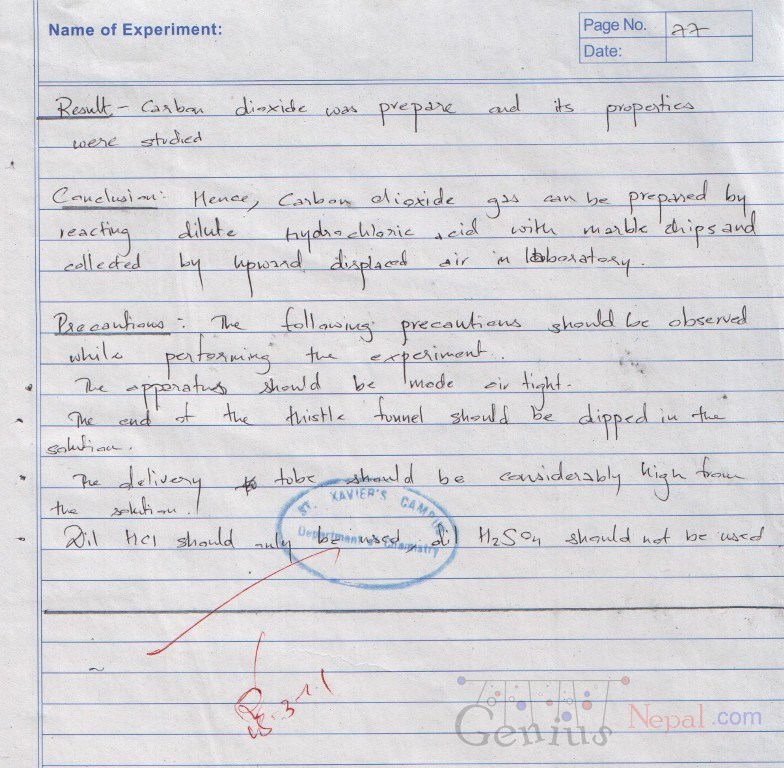 Name of Experiment:
Page No. 77
Date:
Result - Carbon dioxide was prepare and its properties
were studied
Conclusion: Hence, Carbon dioxide gas can be prepared by
reacting dilute hydrochloric acid with marble chips and
collected by upward displaced air in laboratory.
Precautions: The following precautions should be observed
while performing the experiment.
The apparatus should be made air tight.
The end of the thistle funnel should be dipped in the
solution.
The delivery tube should be considerably high from
the solution.
Dil HCl should only be used, dil H₂SO₄ should not be used
ST. XAVIER'S CAMPUS
Department of Chemistry
Genius Nepal.com